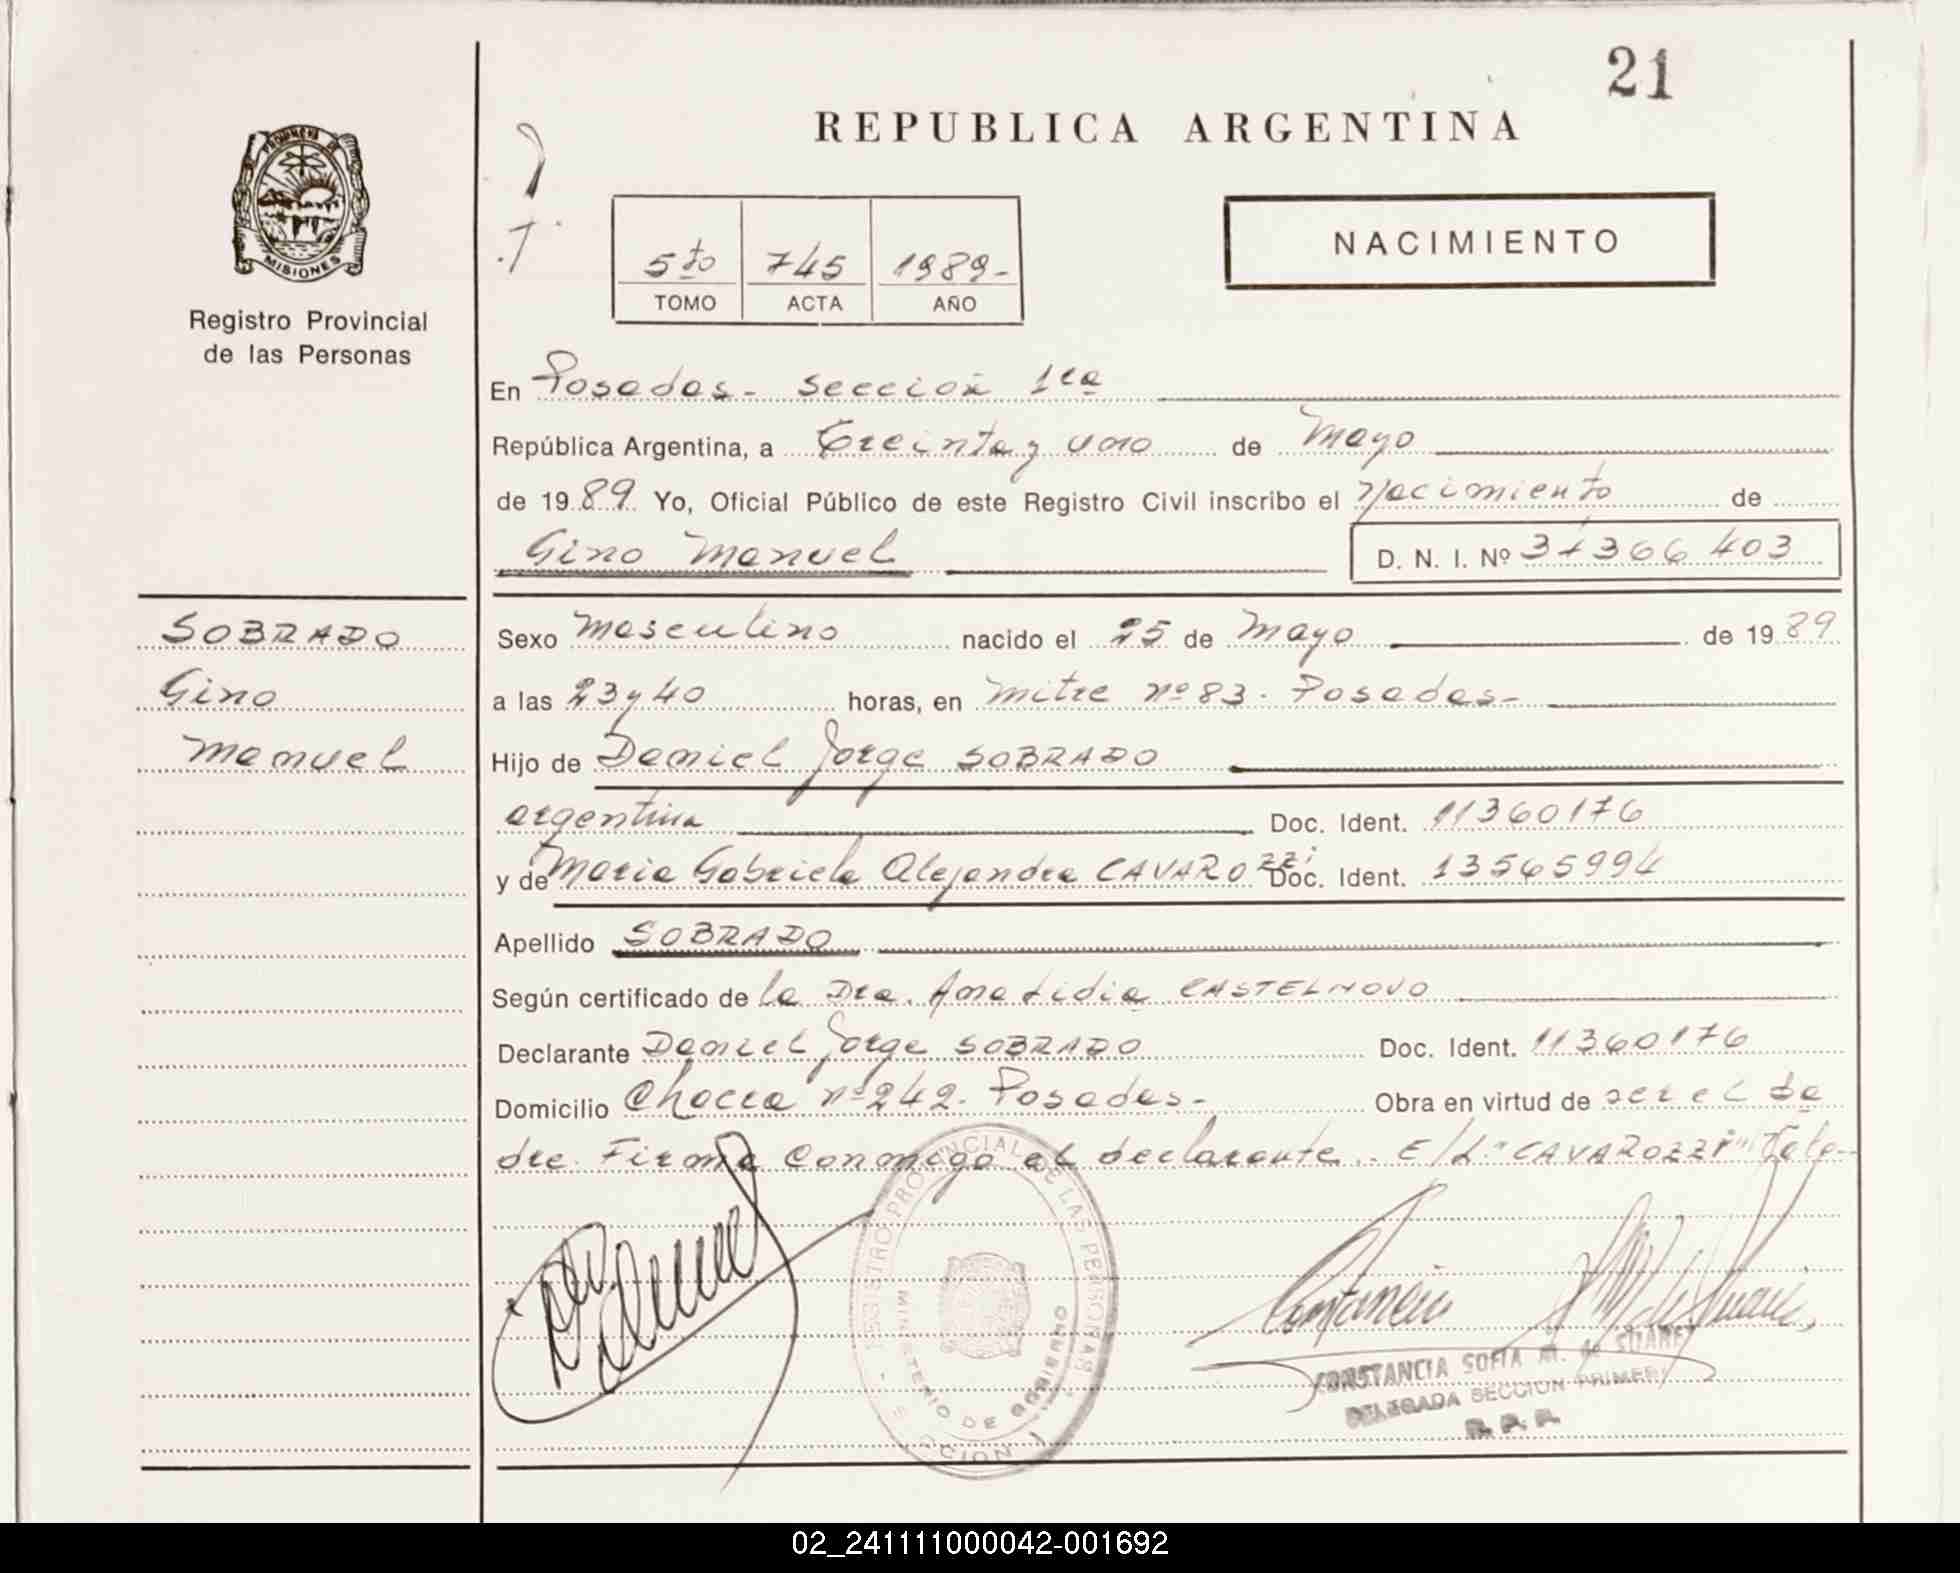 21
REPUBLICA ARGENTINA
PROVINCIA DE
MISIONES
Registro Provincial
de las Personas
5to 745 1989-
TOMO ACTA AÑO
NACIMIENTO
En Posadas- sección 1ra
República Argentina, a Treinta y uno de Mayo
de 1989. Yo, Oficial Público de este Registro Civil inscribo el Nacimiento de
Gino Manuel D. N. I. Nº 34366403
SOBRADO
Gino
Manuel
Sexo Masculino nacido el 25 de Mayo de 1989
a las 23 y 40 horas, en Mitre nº 83. Posadas-
Hijo de Daniel Jorge SOBRADO
argentina Doc. Ident. 11360176
y de Maria Gabriela Alejandra CAVAROZZI Doc. Ident. 13565994
Apellido SOBRADO
Según certificado de la Dra. Ana Lidia CASTELNOVO
Declarante Daniel Jorge SOBRADO Doc. Ident. 11360176
Domicilio Chacra nº 242. Posadas- Obra en virtud de ser el Pa
dre. Firma conmigo el declarante.. E/L "CAVAROZZI" Vale-
REGISTRO PROVINCIAL DE LAS PERSONAS
MINISTERIO DE GOBIERNO
SECCION 1
CONSTANCIA SOFIA M. de SUAREZ
DELEGADA SECCION PRIMERA
R. P. P.
02_241111000042-001692